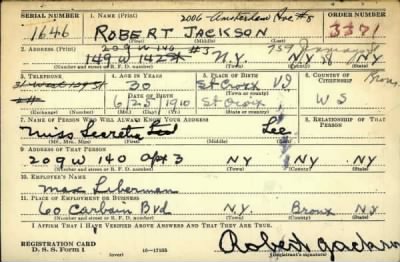 SERIAL NUMBER 1. NAME (Print) 2006 Amsterdam Ave #8 ORDER NUMBER
1646 ROBERT JACKSON 3371
(First) (Middle) (Last)
2. ADDRESS (Print) 209 W 146 #3 759
149 W 142 St N.Y. NY NY
(Number and street or R. F. D. number) (Town) (County) (State)
3. TELEPHONE 4. AGE IN YEARS 5. PLACE OF BIRTH 6. COUNTRY OF CITIZENSHIP Bronx
30 St Croix V.I
DATE OF BIRTH (Town or county)
6 25 1910 St Croix U S
(Exchange) (Number) (Mo.) (Day) (Yr.) (State or country)
7. NAME OF PERSON WHO WILL ALWAYS KNOW YOUR ADDRESS 8. RELATIONSHIP OF THAT PERSON
Miss Lee
(Mr., Mrs., Miss) (First) (Middle) (Last)
9. ADDRESS OF THAT PERSON
209 W 140 Apt 3 NY NY NY
(Number and street or R. F. D. number) (Town) (County) (State)
10. EMPLOYER'S NAME
Max Liberman
11. PLACE OF EMPLOYMENT OR BUSINESS
60 Blvd NY Bronx NY
(Number and street or R. F. D. number) (Town) (County) (State)
I AFFIRM THAT I HAVE VERIFIED ABOVE ANSWERS AND THAT THEY ARE TRUE.
REGISTRATION CARD
D. S. S. Form 1 (over) 16—17105 Robert Jackson
(Registrant's signature)